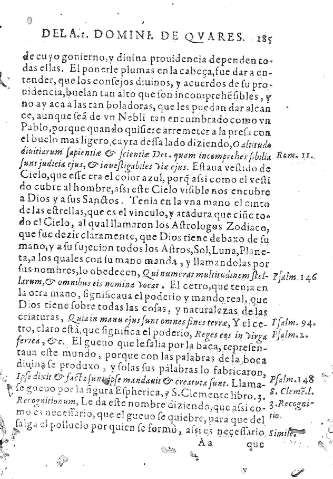 DELA.1. DOMINA DE QVARES. 185
de cuyo gouierno, y diuina prouidencia dependen to-
das ellas. El ponerle plumas en la cabeça, fue dar a en-
tender, que los consejos diuinos, y acuerdos de su pro-
uidencia, buelan tan alto que son incomprehẽsibles, y
no ay aca alas tan boladoras, que les puedan dar alcan
ce, aunque seã de vn Nebli tan encumbrado como vn
Pablo, porque quando quisiere arremeter a la presa con
el buelo mas ligero, cayra desalado diziendo, O altitudo
diuitiarum sapientiæ & scientiæ Dei. quam incomprehẽsibilia
sunt iudicia ejus, & inuestigabiles viæ ejus. Estaua vestido de
Cielo, que esse era el color azul, porq̃ assi como el vesti
do cubre al hombre, assi este Cielo visible nos encubri
a Dios y a sus Sanctos. Tenia en la vna mano el cinto
de las estrellas, que es el vinculo, y atadura que ciñe to
do el Cielo, al qual llamaron los Astrologos Zodiaco,
que fue dezir claramente, que Dios tiene debaxo de su
mano, y a su sujecion todos los Astros, Sol, Luna, Plane-
ta, a los quales con su mano manda, y llamandolas por
sus nombres, lo obedecen, Qui numerat multitudinem stel-
larum, & omnibus eis nomina vocat. El cetro, que tenia en
la otra mano, significaua el poderio y mando real, que
Dios tiene sobre todas las cosas, y naturalezas de las
criaturas, Quia in manu ejus sunt omnes fines terræ, Y el ce-
tro, claro està, que significa el poderio, Reges eos in virga
ferrea, &c. El gueuo que le salia por la baca, represen-
taua este mundo, porque con las palabras de la boca
diuina se produxo, y solas sus palabras lo fabricaron,
Ipse dixit & facta sunt, ipse mandauit & creata sunt. Llama-
se gueuo por la figura Espherica, y S. Clemente libro. 3.
Recognitionum, Le da este nombre diziendo, que assi co-
mo es necessario, que el gueuo se quiebre, para que del
salga el polluelo por quien se formó, assi es necessario
Aa que
Rom. 11.
Psalm. 146
Psalm. 94.
Psalm. 2.
Psalm. 148
S. Cleme. l.
3. Recogni-
tio.
Simile.